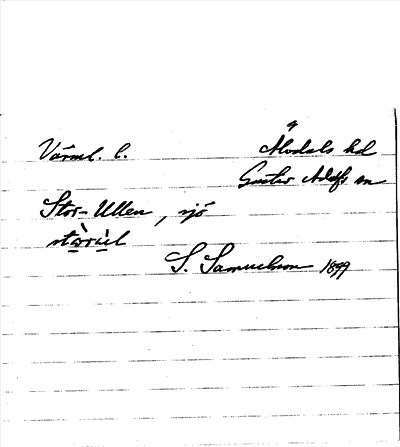 Värml. l.
Älvdals hd
Gustav Adolfs sn
Stor-Ullen, sjö
stòrùl
S. Samuelsson 1899